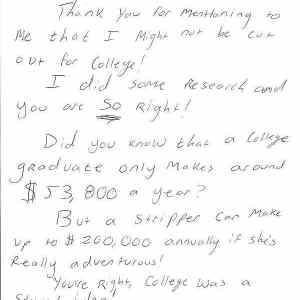 Thank you for mentioning to
me that I might not be cut
out for college!
I did some research and
you are so right!
Did you know that a college
graduate only makes around
$53,800 a year?
But a stripper can make
up to $200,000 annually if she's
really adventurous!
You're right, college was a